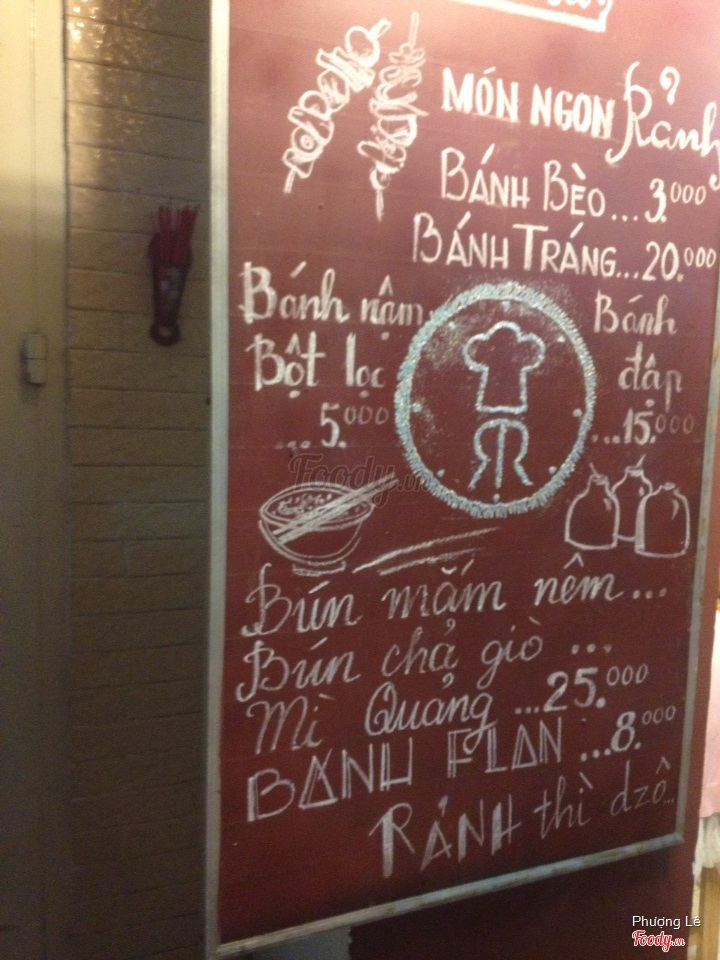 MÓN NGON Rảnh
BÁNH BÈO...3.000
BÁNH TRÁNG...20.000
Bánh nậm
Bột lọc
...5.000
Bánh
đập
...15.000
Foody.vn
Bún mắm nêm...
Bún chả giò ...
Mì Quảng ...25.000
BÁNH FLAN ...8.000
RẢNH thì dzô...
Phượng Lê
Foody.vn